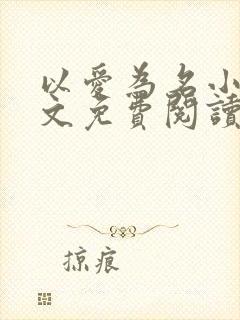 以愛為名小
文免費閱讀
掠痕